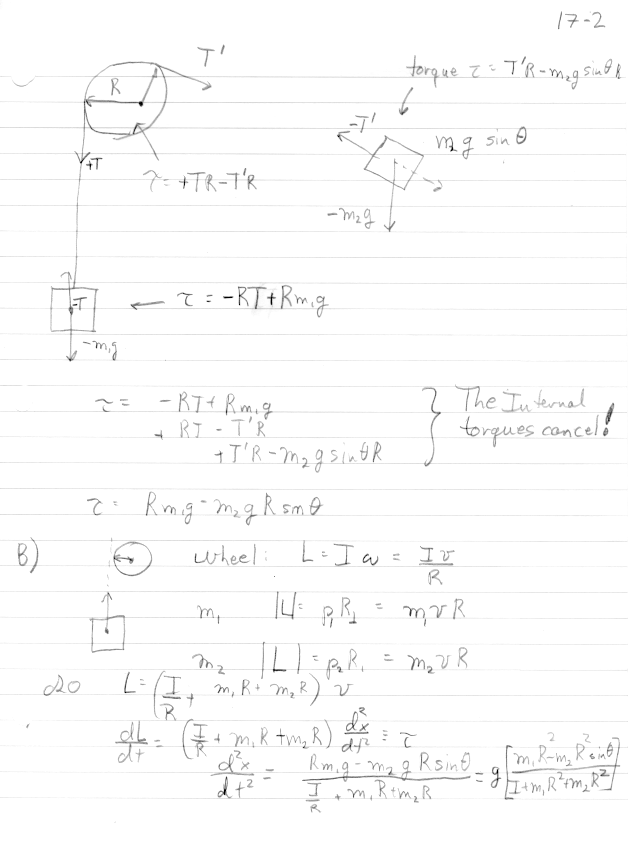 17-2
T'
torque τ = T'R - m₂g sinθ R
R
-T'
m₂ g sin θ
+T
τ = +TR - T'R
-m₂g
-T
← τ = -RT + Rm₁g
-m₁g
τ = -RT + Rm₁g
+ RT - T'R
+ T'R - m₂g sinθR
} The Internal
torques cancel!
τ = Rm₁g - m₂g R sinθ
B)
wheel: L = I ω = Iv/R
m₁ |L| = p₁R⊥ = m₁vR
m₂ |L| = p₂R⊥ = m₂vR
so L = (I/R + m₁R + m₂R) v
dL/dt = (I/R + m₁R + m₂R) d²x/dt² = τ
d²x/dt² = (Rm₁g - m₂g R sinθ)/(I/R + m₁R + m₂R) = g[(m₁R² - m₂R² sinθ)/(I + m₁R² + m₂R²)]